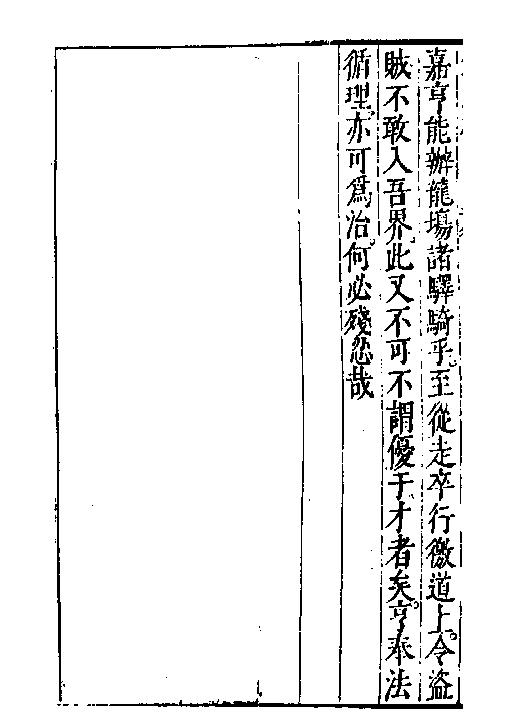 嘉亨能辦龍場諸驛騎乎。至從走卒行徼道上。令盜
賊不敢入吾界。此又不可不謂優于才者矣。亨奉法
循理。亦可爲治。何必殘忍哉